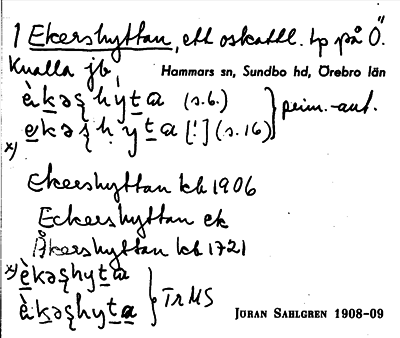 1 Ekershyttan, ett oskattl. tp på Ö.
Knalla jb,
Hammars sn, Sundbo hd, Örebro län
è̀kəʂhy̍ta (s.6.)
ekəʂhy̍ta [!] (s.16) } prim.-aut.
x)
Ekershyttan kb 1906
Eckershyttan ek
Åkershyttan kb 1721
x) èkəʂhyta
èkəʂhyta } TrMS
JÖRAN SAHLGREN 1908–09